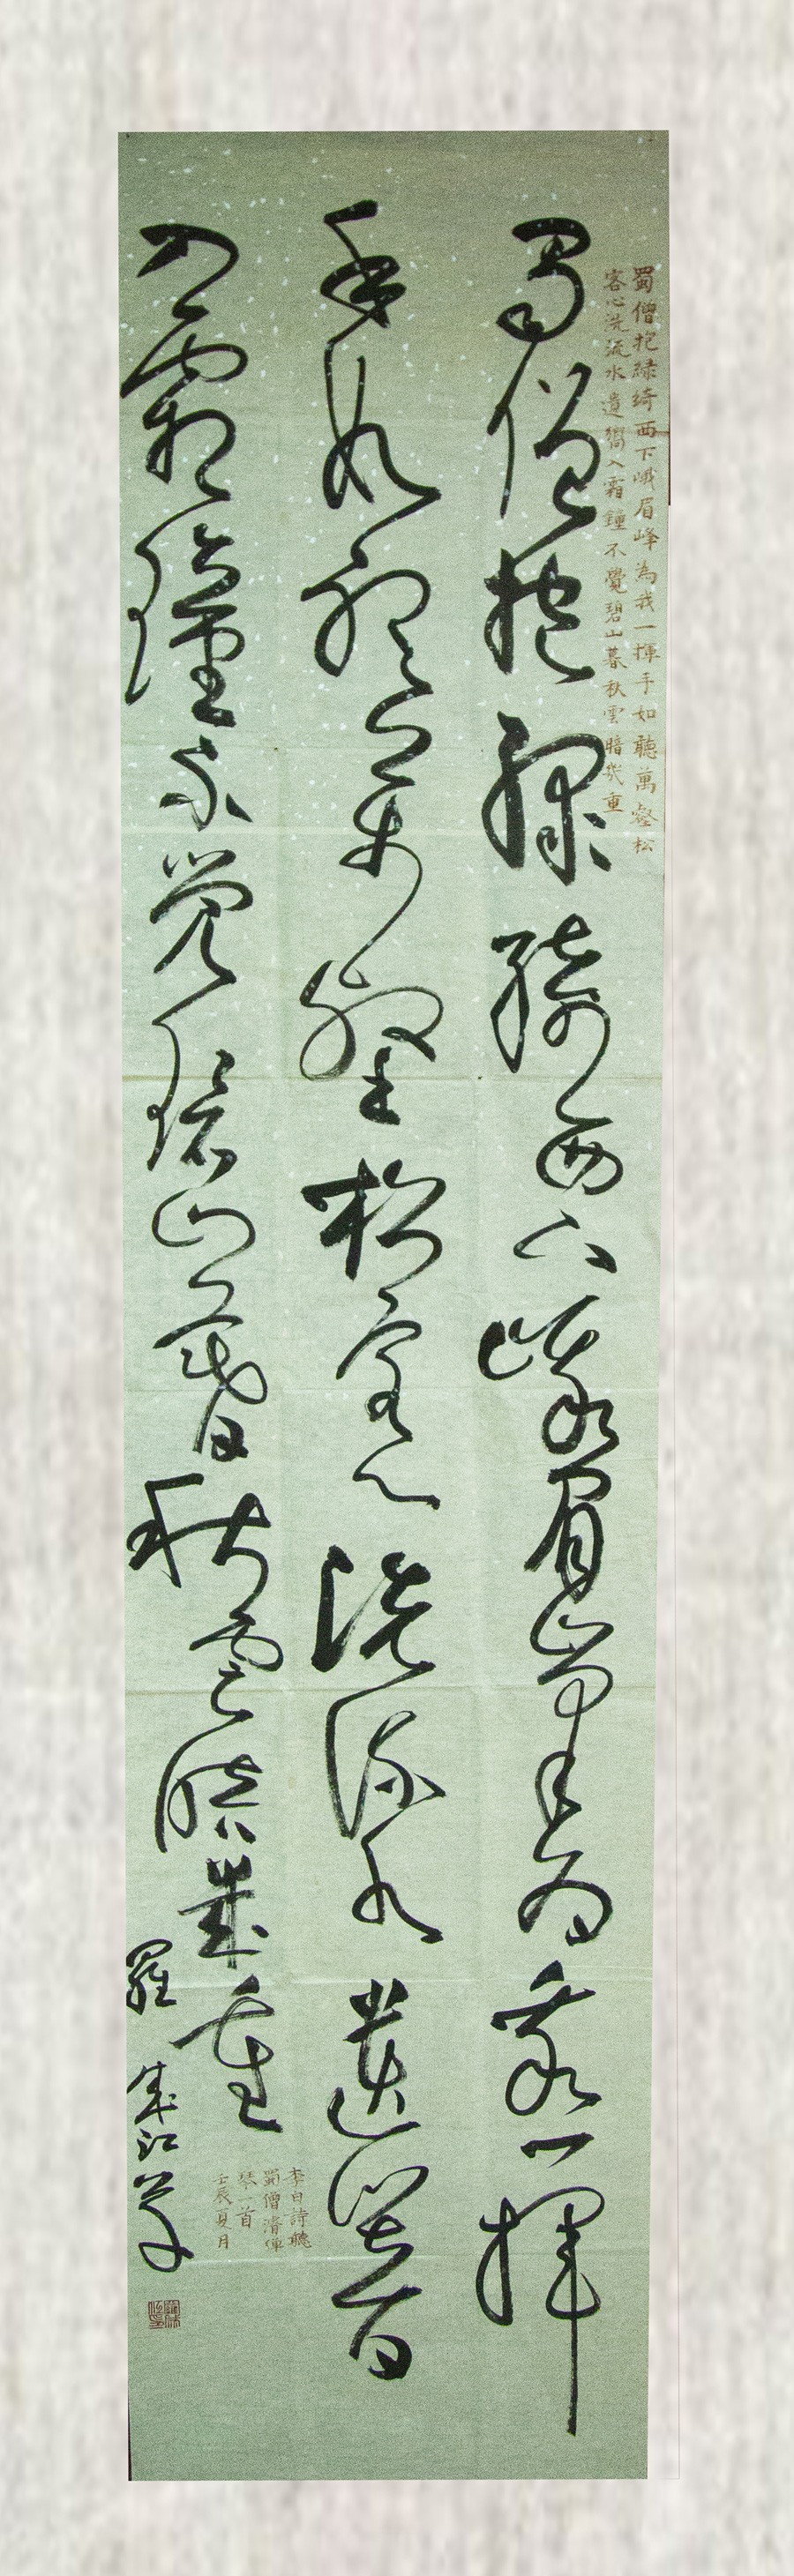 蜀僧抱綠綺西下峨眉峰為我一揮手如聽萬壑松
客心洗流水遺響入霜鐘不覺碧山暮秋雲暗幾重
蜀僧抱綠綺西下峨眉峰為我一揮
手如聽萬壑松客心洗流水遺響
入霜鐘不覺碧山暮秋雲暗幾重
李白詩聽
蜀僧濬彈
琴一首
壬辰夏月
羅成江草